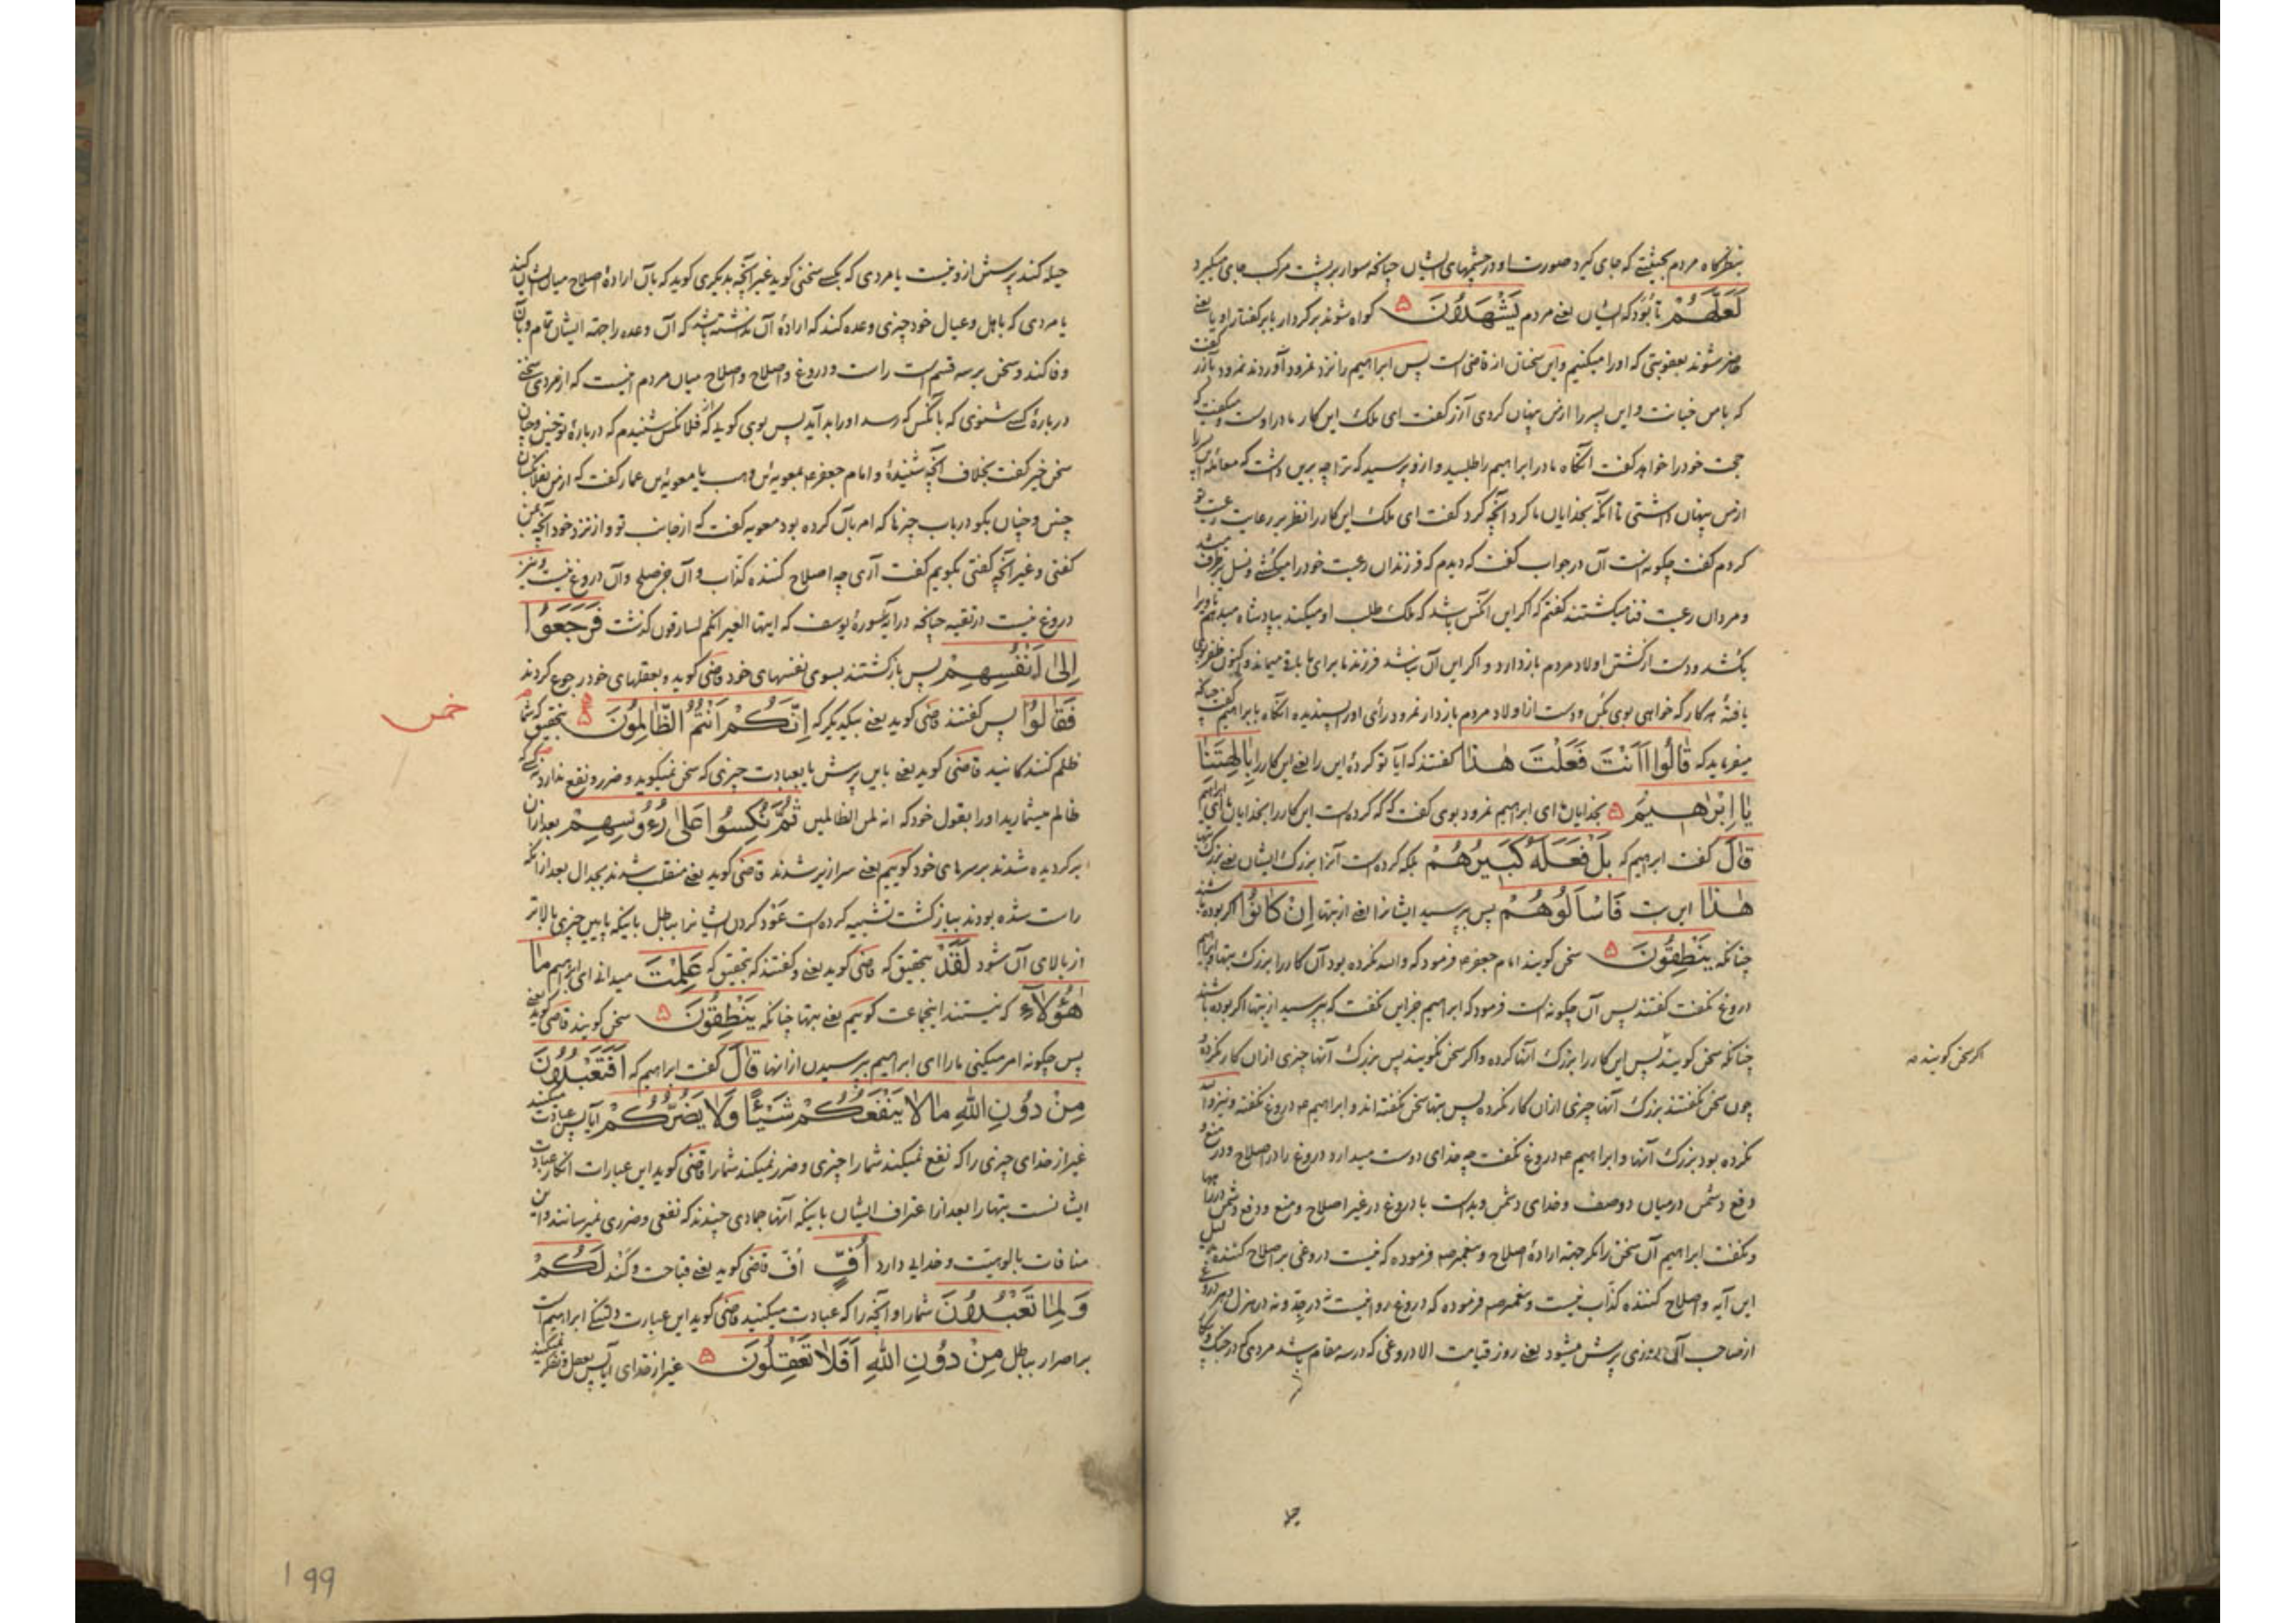 بنظرگاه مردم بحیثیتی که جای گیرد صورت او در چشمهای ایشان چنانکه سوار بر پشت مرکب جای میگیرد
لَعَلَّهُمْ تا بُوَد که ایشان یعنی مردم يَشْهَدُونَ ۵ گواه شوند بر کردار یا بر گفتار او یا یعنی
حاضر شوند بعقوبتی که او را میکنیم و این سخنان از قاضی است پس ابراهیم را نزد نمرود آوردند نمرود بآزر گفت
که با من خیانت و این پسر را از من پنهان کردی آزر گفت ای ملک این کار مادر اوست و میگفت که
حجت خود را خواهد گفت آنگاه مادر ابراهیم را طلبید و ازو پرسید که ترا چه برین داشت که معامله این پسر را
از من پنهان داشتی تا آنکه بخدایان ما کرد آنچه کرد گفت ای ملک این کار را نظر بر رعایت رعیت تو
کردم گفت چگونه است آن در جواب گفت که دیدم که فرزندان رعیت خود را میکشی و نسل برطرف میشد
و مردان رعیت فنا میکشتند گفتم که اگر این آنکس باشد که ملک طلب او میکند بپادشاه میدهم تا او را
بکشد و دست از کشتن اولاد مردم بازدارد و اگر این آن نباشد فرزند ما برای ما باقی میماند و اکنون ظفر بوی
یافتهٔ هر کار که خواهی بوی بکن و دست از اولاد مردم بازدار نمرود رأی او را پسندیده آنگاه بابراهیم گفت چنانکه
میفرماید که قَالُوا أَأَنْتَ فَعَلْتَ هٰذَا گفتند که آیا تو کردهٔ این را یعنی این کار را بِآلِهَتِنَا
يَا إِبْرَاهِيمُ ۵ بخدایان ای ابراهیم نمرود بوی گفت که که کرده است این کار را بخدایان ما ای ابراهیم
قَالَ گفت ابراهیم که بَلْ فَعَلَهُ كَبِيرُهُمْ بلکه کرده است آنرا بزرگ ایشان یعنی بزرگ بتها
هٰذَا این بت فَاسْأَلُوهُمْ پس بپرسید ایشانرا یعنی از بتها إِنْ كَانُوا اگر بوده باشند
چنانکه يَنْطِقُونَ ۵ سخن گویند امام جعفر ع فرمود که والله نکرده بود آن کار را بزرگ بتها و ابراهیم
دروغ نگفت گفتند پس آن چگونه است فرمود که ابراهیم جز این نگفت که بپرسید از بتها اگر بوده باشند
چنانکه سخن گویند پس این کار را بزرگ آنها کرده و اگر سخن نگویند پس بزرگ آنها چیزی از آن کار نکرده
چون سخن نگفتند بزرگ آنها چیزی از آن کار نکرده پس بتها سخن نگفته اند و ابراهیم ع دروغ نگفته و نیز
نکرده بود بزرگ آنها و ابراهیم ع دروغ نگفت چه خدای دوست میدارد دروغ را در اصلاح و در منع و
دفع دشمن درمیان دو صف و خدای دشمن و بداست با دروغ در غیر اصلاح و منع و دفع دشمن
و نگفت ابراهیم آن سخن را مگر جهة ارادهٔ اصلاح و پیغمبر ص فرموده که نیست دروغی بر اصلاح کننده
این آیه و اصلاح کننده کذّاب نیست و پیغمبر ص فرموده که دروغ روا نیست نه در جدّ و نه در هزل
از صاحب آن روزی پرسش میشود یعنی روز قیامت الا دروغی که در سه مقام باشد مردی که در جنگ
اگر سخن گویند ص
حیله
حیله کند پرسش ازو نیست یا مردی که بیکی سخنی گوید غیر آنچه بدیگری گوید که بآن ارادهٔ اصلاح میان ایشان کند
یا مردی که باهل و عیال خود چیزی وعده کند که ارادهٔ آن نداشته باشد که آن وعده را جهة ایشان تمام و بآن
وفا کند و سخن بر سه قسم است راست و دروغ و اصلاح و اصلاح میان مردم اینست که از مردی سخنی
دربارهٔ کسی شنوی که بآنکس که رسد او را بد آید پس بوی گویی که از فلان کس شنیدم که دربارهٔ تو چنین و چنان
سخن خیر گفت بخلاف آنچه شنیدهٔ و امام جعفر ع بمعویة بن وهب یا معویة بن عمار گفت که از من بفلان کسان
چنین و چنان بگو درباب چیزها که امر بآن کرده بود معویه گفت که از جانب تو و از نزد خود آنچه بمن
گفتی و غیر آنچه گفتی بگویم گفت آری چه اصلاح کننده کذّاب و آن جز صلح و آن دروغ نیست و نیز
دروغ نیست در تقیه چنانکه در آیهٔ سورهٔ یوسف که ایتها العیر انکم لسارقون گذشت فَرَجَعُوا
إِلَىٰ أَنْفُسِهِمْ پس بازگشتند بسوی نفسهای خود قاضی گوید و بعقلهای خود رجوع کردند
فَقَالُوا پس گفتند قاضی گوید یعنی بیکدیگر که إِنَّكُمْ أَنْتُمُ الظَّالِمُونَ ۵ بتحقیق که شما
خمس
ظلم کنندگانید قاضی گوید یعنی باین پرسش یا بعبادت چیزی که سخن نمیگوید و ضرر و نفع ندارد
ظالم میشمارید او را بقول خود که انه لمن الظالمین ثُمَّ نُكِسُوا عَلَىٰ رُءُوسِهِمْ بعد از آن
برگردیده شدند بر سرهای خود گوییم یعنی سرازیر شدند قاضی گوید یعنی منقلب شدند بجدال بعد از آنکه
راست شده بودند ببازگشت تشبیه کرده است عود کردن ایشانرا بباطل باینکه پایین چیزی بالاتر
از بالای آن شود لَقَدْ بتحقیق که قاضی گوید یعنی و گفتند که بتحقیق که عَلِمْتَ میدانی ای ابراهیم مَا
هٰؤُلَاءِ که نیستند اینجماعت گوییم یعنی بتها چنانکه يَنْطِقُونَ ۵ سخن گویند قاضی گوید یعنی
پس چگونه امر میکنی ما را ای ابراهیم بپرسیدن از آنها قَالَ گفت ابراهیم که أَفَتَعْبُدُونَ
مِنْ دُونِ اللهِ مَا لَا يَنْفَعُكُمْ شَيْئًا وَلَا يَضُرُّكُمْ آیا پس عبادت میکنید
غیر از خدای چیزی را که نفع نمیکند شما را چیزی و ضرر نمیکند شما را قاضی گوید این عبارات انکار عبادت
ایشانست بتها را بعد از اعتراف ایشان باینکه آنها جمادی چندند که نفعی و ضرری نمیرسانند و این
منافات بالوهیت و خدایی دارد أُفٍّ أف قاضی گوید یعنی قباحت و گند لَكُمْ
وَلِمَا تَعْبُدُونَ شما را و آنچه را که عبادت میکنید قاضی گوید این عبارت دلتنگی ابراهیم است
بر اصرار بباطل مِنْ دُونِ اللهِ أَفَلَا تَعْقِلُونَ ۵ غیر از خدای آیا پس تعقل و تفکر نمیکنید
199